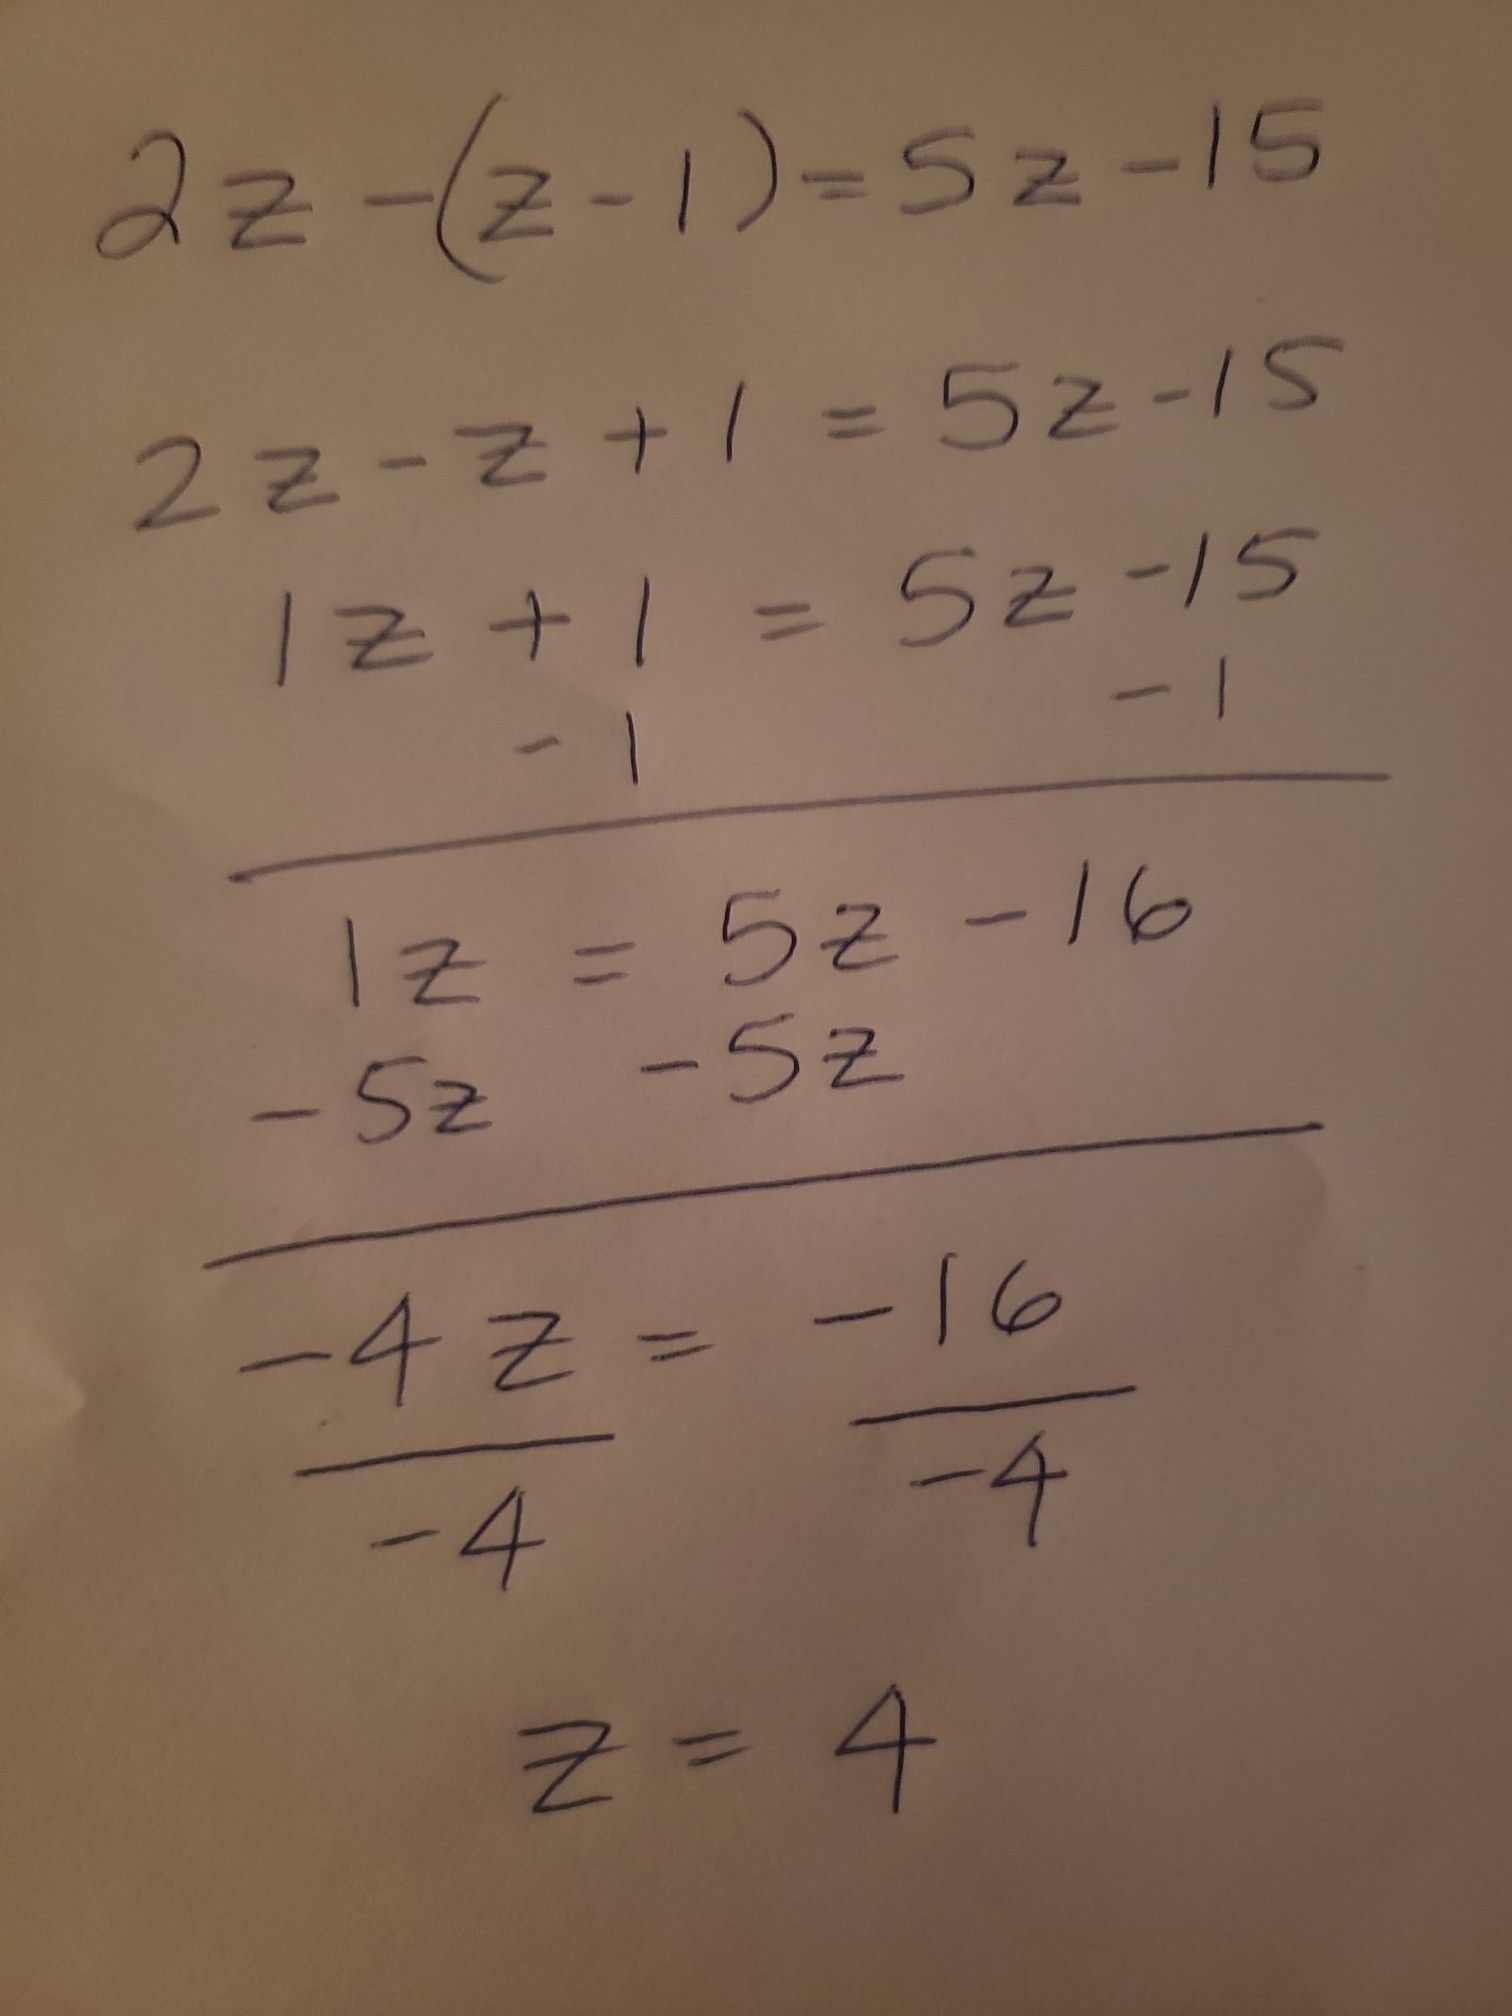 2z-(z-1)=5z-15
2z-z+1=5z-15
1z+1=5z-15
-1 -1
1z=5z-16
-5z -5z
-4z=-16
-4 -4
z=4